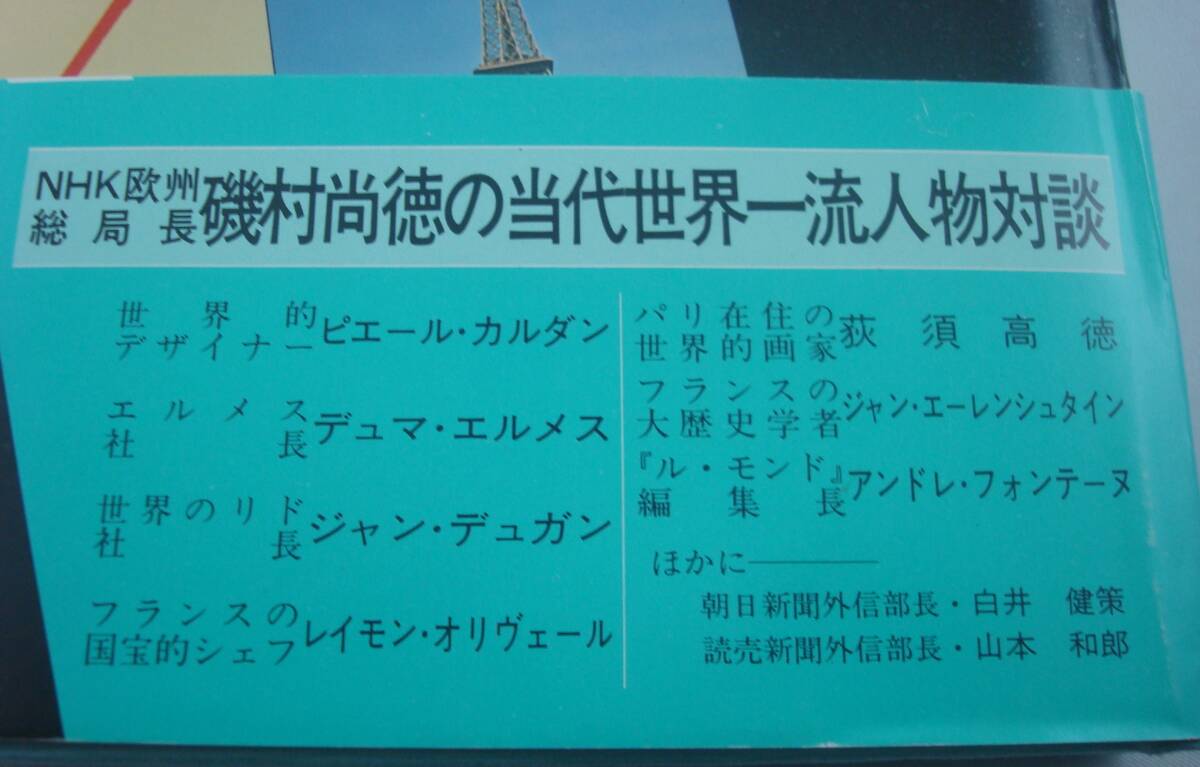 NHK欧州総局長 磯村尚徳の当代世界一流人物対談
世界的デザイナー ピエール・カルダン
エルメス社長 デュマ・エルメス
世界のリド社長 ジャン・デュガン
フランスの国宝的シェフ レイモン・オリヴェール
パリ在住の世界的画家 荻須高徳
フランスの大歴史学者 ジャン・エーレンシュタイン
『ル・モンド』編集長 アンドレ・フォンテーヌ
ほかに───
朝日新聞外信部長・白井 健策
読売新聞外信部長・山本 和郎